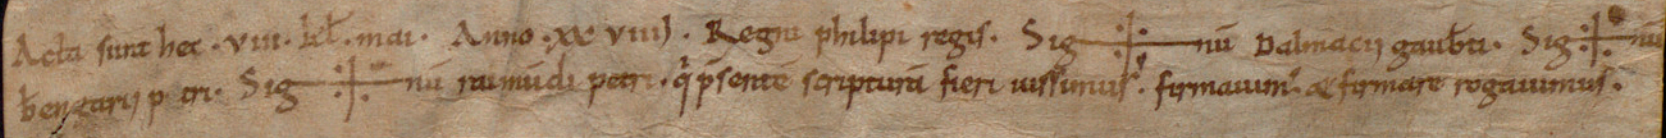 Acta sunt hec · viii · kł · mai · Anno · xx viiij · Regni philipi regis · Sig nū Dalmacij gauƀti · Sig nū
ƀengarij p tri · Sig nū raimūdi petri · q̇ p̄sentē scripturā fieri iussimus · firmauim᷒ · & firmare rogauimus ·